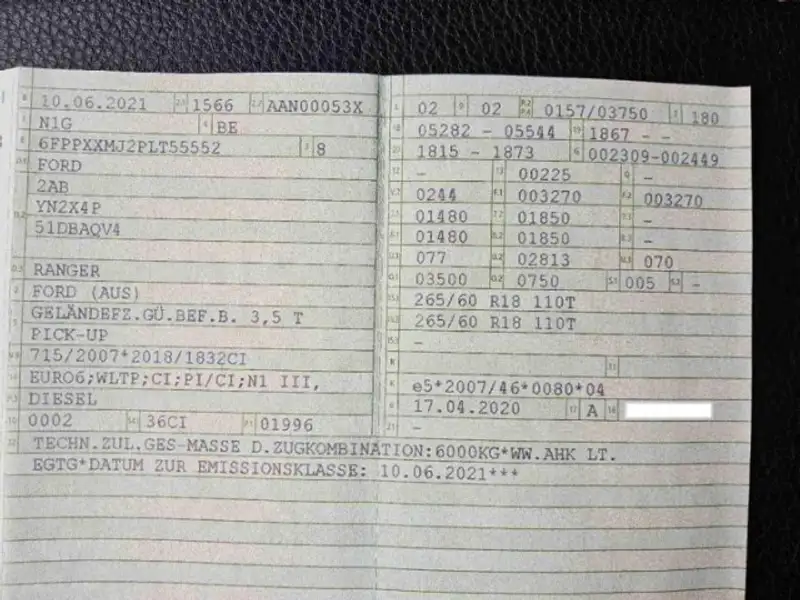 10.06.2021 1566 AAN00053X
N1G BE
6FPPXXMJ2PLT55552 8
FORD
2AB
YN2X4P
51DBAQV4
RANGER
FORD (AUS)
GELÄNDEFZ.GÜ.BEF.B. 3,5 T
PICK-UP
715/2007*2018/1832CI
EURO6;WLTP;CI;PI/CI;N1 III,
DIESEL
0002 36CI 01996
02 02 0157/03750 180
05282 - 05544 1867 - -
1815 - 1873 002309-002449
- 00225 -
0244 003270 003270
01480 01850 -
01480 01850 -
077 02813 070
03500 0750 005 -
265/60 R18 110T
265/60 R18 110T
-
e5*2007/46*0080*04
17.04.2020 A
-
TECHN.ZUL.GES-MASSE D.ZUGKOMBINATION:6000KG*WW.AHK LT.
EGTG*DATUM ZUR EMISSIONSKLASSE: 10.06.2021***